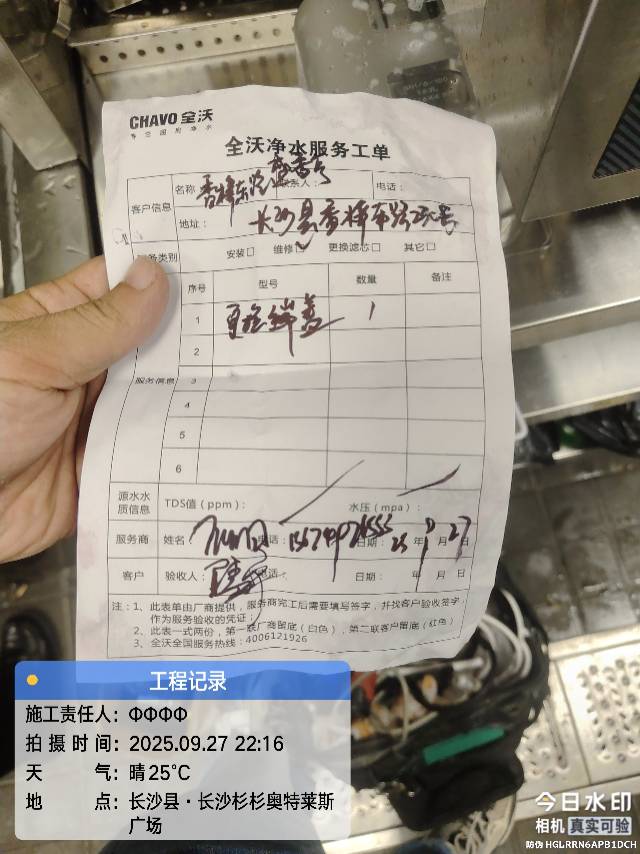 CHAVO 全沃
全沃净水服务工单
客户信息
名称
联系人：
电话：
地址：
长沙县香樟东路
服务类别
安装□ 维修□ 更换滤芯□ 其它□
服务信息
序号 型号 数量 备注
1 1
2
3
4
5
6
源水水质信息
TDS值（ppm）： 水压（mpa）：
服务商
姓名 电话： 日期： 25年9月27日
客户
验收人： 电话： 日期： 年 月 日
注：1、此表单由厂商提供，服务商完工后需要填写签字，并找客户验收签字
作为服务验收的凭证；
2、此表一式两份，第一联厂商留底（白色），第二联客户留底（红色）
3、全沃全国服务热线：4006121926
工程记录
施工责任人：ΦΦΦΦ
拍摄时间：2025.09.27 22:16
天气：晴25℃
地点：长沙县·长沙杉杉奥特莱斯
广场
今日水印
相机 真实可验
防伪 HGLRRN6APB1DCH